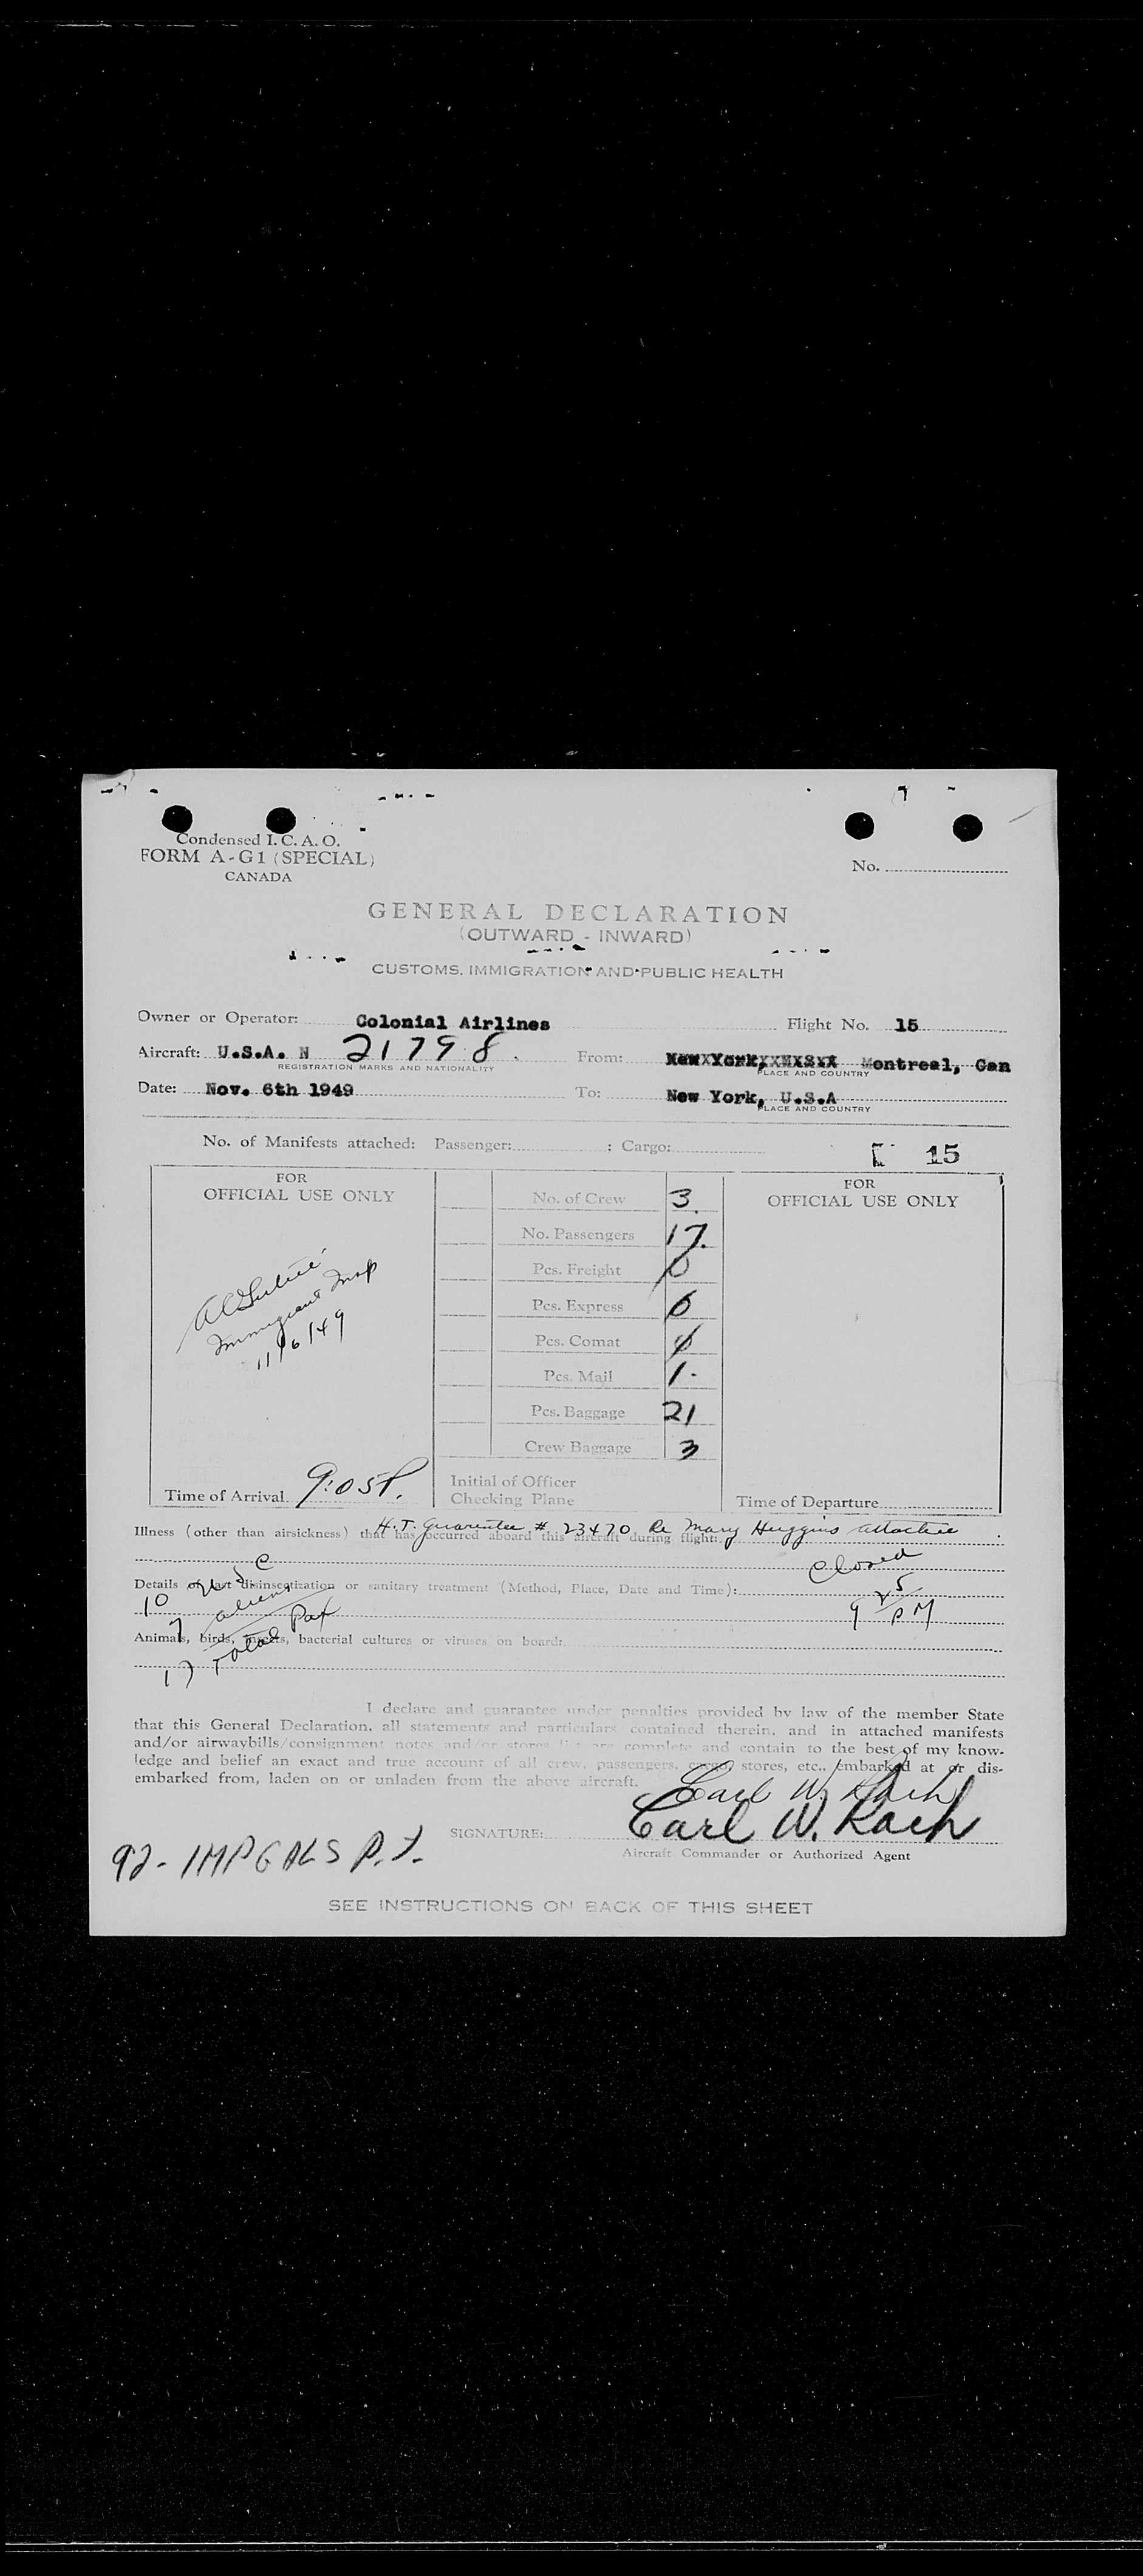 Condensed I. C. A. O.
FORM A-G1 (SPECIAL)
CANADA
No.
GENERAL DECLARATION
(OUTWARD - INWARD)
CUSTOMS, IMMIGRATION AND PUBLIC HEALTH
Owner or Operator: Colonial Airlines Flight No. 15
Aircraft: U.S.A. N 21798. From: Montreal, Can
REGISTRATION MARKS AND NATIONALITY PLACE AND COUNTRY
Date: Nov. 6th 1949 To: New York, U.S.A
PLACE AND COUNTRY
No. of Manifests attached: Passenger: ; Cargo: 15
FOR OFFICIAL USE ONLY
No. of Crew 3
No. Passengers 17.
Pcs. Freight 0
Pcs. Express 0
Pcs. Comat
Pcs. Mail 1
Pcs. Baggage 21
Crew Baggage 3
FOR OFFICIAL USE ONLY
Immigrant Insp
11/6/49
Time of Arrival 9:05P.
Initial of Officer
Checking Plane
Time of Departure
H.T. Guarentee # 23470 Re Mary Huggins attached
Illness (other than airsickness) that has occurred aboard this aircraft during flight:
Closed
9 25 PM
Details of last disinsectization or sanitary treatment (Method, Place, Date and Time):
10 U S C
7 aliens
17 Total Pax
Animals, birds, insects, bacterial cultures or viruses on board:
I declare and guarantee under penalties provided by law of the member State
that this General Declaration, all statements and particulars contained therein, and in attached manifests
and/or airwaybills/consignment notes and/or stores list are complete and contain to the best of my know-
ledge and belief an exact and true account of all crew, passengers, cargo, stores, etc., embarked at or dis-
embarked from, laden on or unladen from the above aircraft.
Carl W. Rach
SIGNATURE: Carl W. Rach
Aircraft Commander or Authorized Agent
92 - IMP GALS
SEE INSTRUCTIONS ON BACK OF THIS SHEET